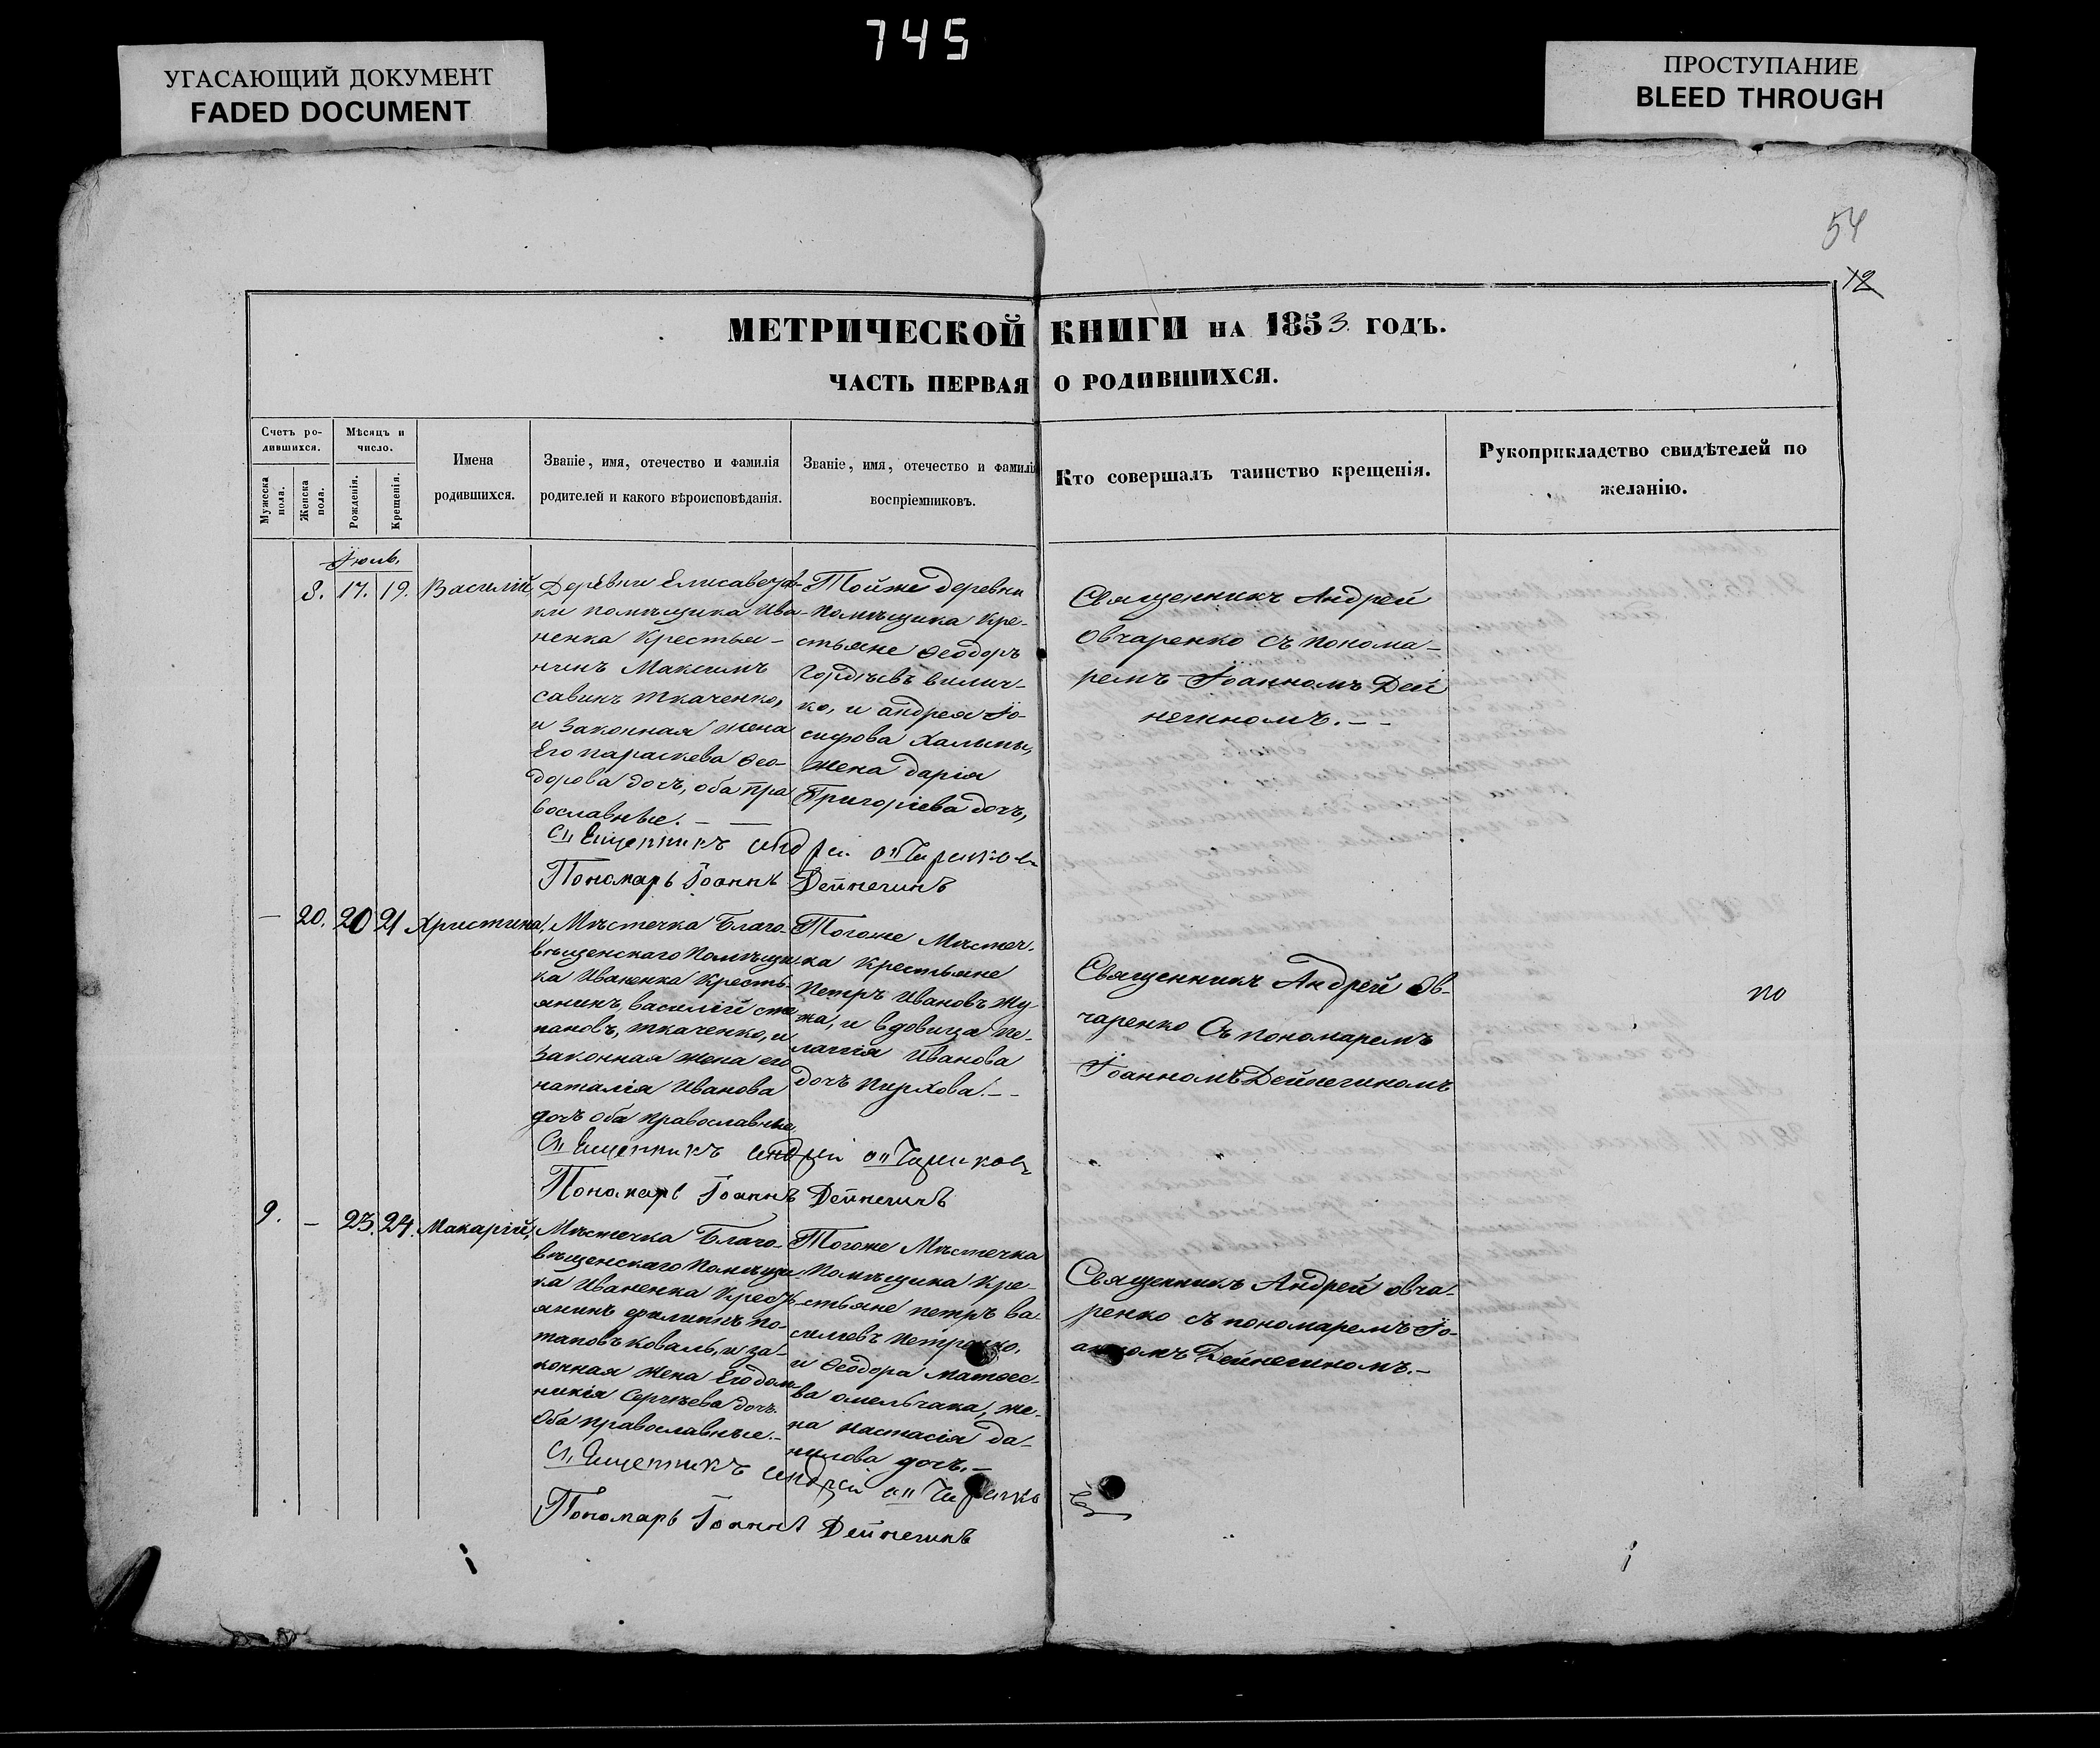 745
УГАСАЮЩИЙ ДОКУМЕНТ
FADED DOCUMENT
ПРОСТУПАНИЕ
BLEED THROUGH
54
12
МЕТРИЧЕСКОЙ КНИГИ НА 1853. ГОДЪ.
ЧАСТЬ ПЕРВАЯ О РОДИВШИХСЯ.
Счетъ ро-
дившихся.
Мужеска
пола.
Женска
пола.
Мѣсяцъ и
число.
Рожденія.
Крещенія.
Имена
родившихся.
Званіе, имя, отечество и фамилія
родителей и какого вѣроисповѣданія.
Званіе, имя, отечество и фамилія
воспріемниковъ.
Кто совершалъ таинство крещенія.
Рукоприкладство свидѣтелей по
желанію.
Іюль.
8. 17. 19. Василій,
Деревни Елисаветов-
ки помѣщика Ива-
ненка Крестья-
нинъ Максимъ
савинъ ткаченко,
и Законная жена
Его параскева Ѳео-
дорова дочь, оба пра
вославные. —
Тойже деревни
помѣщика Кре-
стьяне Ѳеодоръ
Гордѣевъ велич-
ко, и андрея Іо-
сифова Халыпы,
жена дарія
Григоріева дочь,
Священникъ Андрей
Овчаренко съ понома-
ремъ Іоанномъ Дей
негиномъ. — -
Пономарь Іоаннъ Дейнегинъ
— 20. 20 21 Христина,
Мѣстечка Благо-
вѣщенскаго Помѣщи
ка Иваненка Кресть-
янинъ, василій сте
пановъ, ткаченко, и
Законная жена его
наталія Иванова
дочь оба православные,
Тогоже Мѣстеч-
ка крестьяне
Петръ Ивановъ Жу-
жа, и вдовица пе-
лагія Иванова
дочь Пирхова. — -
Священникъ Андрей Ов-
чаренко Съ пономаремъ
Іоанномъ Дейнегиномъ
по
Пономарь Іоаннъ Дейнегинъ
9. — 23. 24. Макарій,
Мѣстечка Благо-
вѣщенскаго Помѣщи
ка Иваненка Крест
янинъ филиппъ по-
таповъ коваль, и за-
конная жена Его дом
никія Сергѣева дочь
Оба православные. -
Тогоже Мѣстечка
Помѣщика Кре-
стьяне петръ ва-
силіевъ Петренко,
и Ѳеодора Матвее-
ва омельчака, же-
на настасія да-
нилова дочь. —
Священникъ Андрей овча-
ренко съ пономаремъ Іо-
анномъ Дейнегиномъ. —
Пономарь Іоаннъ Дейнегинъ